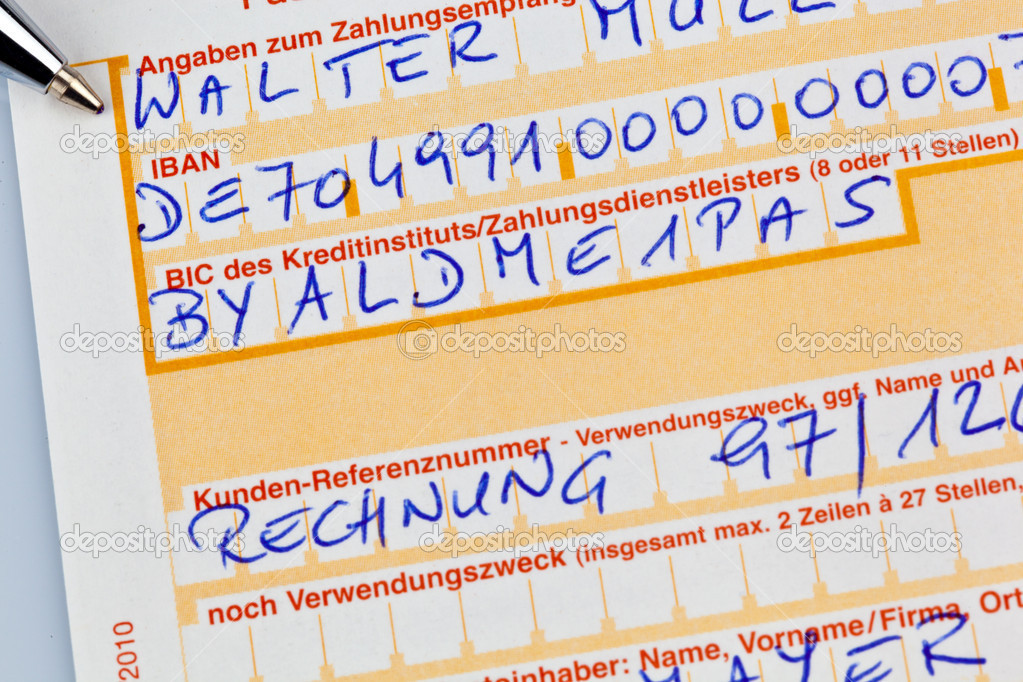 Angaben zum Zahlungsempfäng
WALTER MÜLL
IBAN
DE70 4991 0000 0000
BIC des Kreditinstituts/Zahlungsdienstleisters (8 oder 11 Stellen)
BYALDME1PAS
Kunden-Referenznummer - Verwendungszweck, ggf. Name und
RECHNUNG 97/12
noch Verwendungszweck (insgesamt max. 2 Zeilen à 27 Stellen,
teinhaber: Name, Vorname/Firma, Ort
MAYER
2010
depositphotos depositphotos depositphotos
depositphotos depositphotos depositphotos
depositphotos depositphotos depositphotos